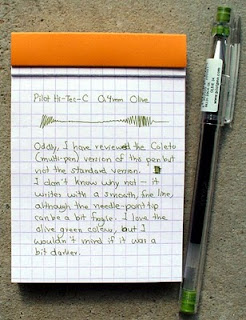 Pilot Hi-Tec-C 0.4mm Olive
Oddly, I have reviewed the Coleto
(multi-pen) version of the pen but
not the standard version.
I don't know why not - it
writes with a smooth, fine line,
although the needle-point tip
can be a bit fragile. I love the
olive green color, but I
wouldn't mind if it was a
bit darker.